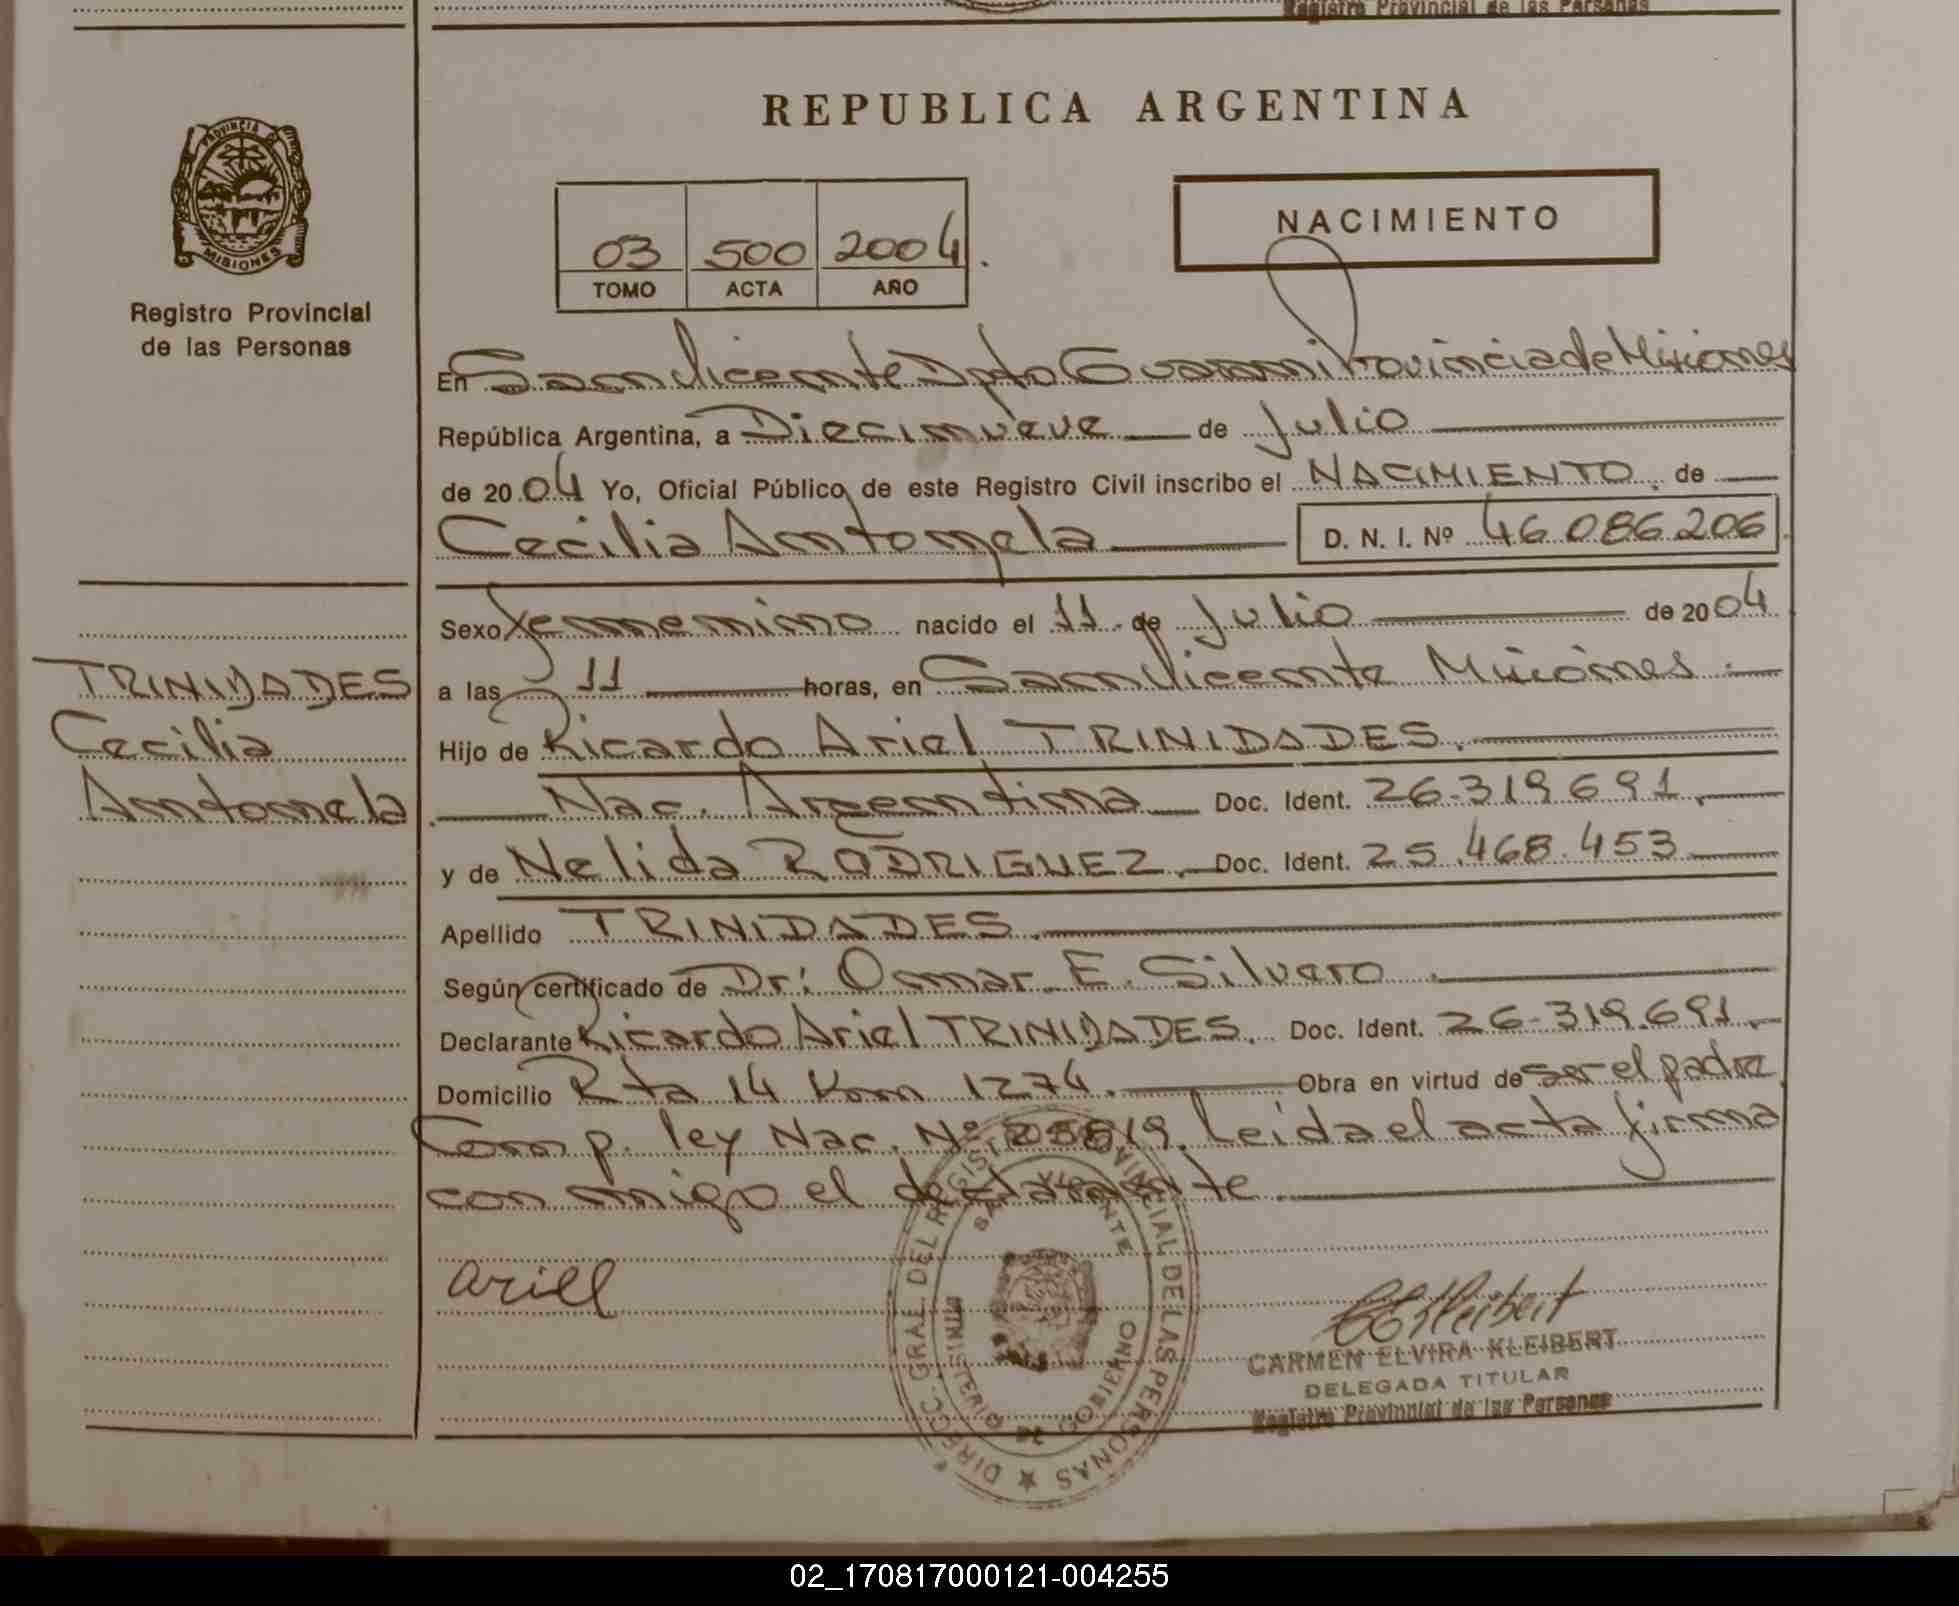 Registro Provincial de las Personas
REPUBLICA ARGENTINA
PROVINCIA DE
MISIONES
Registro Provincial
de las Personas
03 500 2004.
TOMO ACTA AÑO
NACIMIENTO
En San Vicente Dpto Guarani Provincia de Misiones
República Argentina, a Diecinueve de Julio
de 2004 Yo, Oficial Público de este Registro Civil inscribo el NACIMIENTO. de
Cecilia Antonela D. N. I. Nº 46.086.206
Sexo Femenino nacido el 11 de Julio de 2004
a las 11 horas, en San Vicente Misiones
TRINIDADES
Cecilia
Antonela
Hijo de Ricardo Ariel TRINIDADES.
Nac. Argentina Doc. Ident. 26.319.691
y de Nelida RODRIGUEZ. Doc. Ident. 25.468.453
Apellido TRINIDADES.
Según certificado de Dr: Osmar E. Silvero
Declarante Ricardo Ariel TRINIDADES. Doc. Ident. 26.319.691
Domicilio Rta 14 Km 1274. Obra en virtud de ser el padre
Comp. ley Nac. Nº 25819. Leida el acta firma
conmigo el declarante
ariel
DIRECC. GRAL. DEL REGISTRO PROVINCIAL DE LAS PERSONAS
SAN VICENTE
MINISTERIO DE GOBIERNO
CARMEN ELVIRA KLEIBERT
DELEGADA TITULAR
Registro Provincial de las Personas
02_170817000121-004255